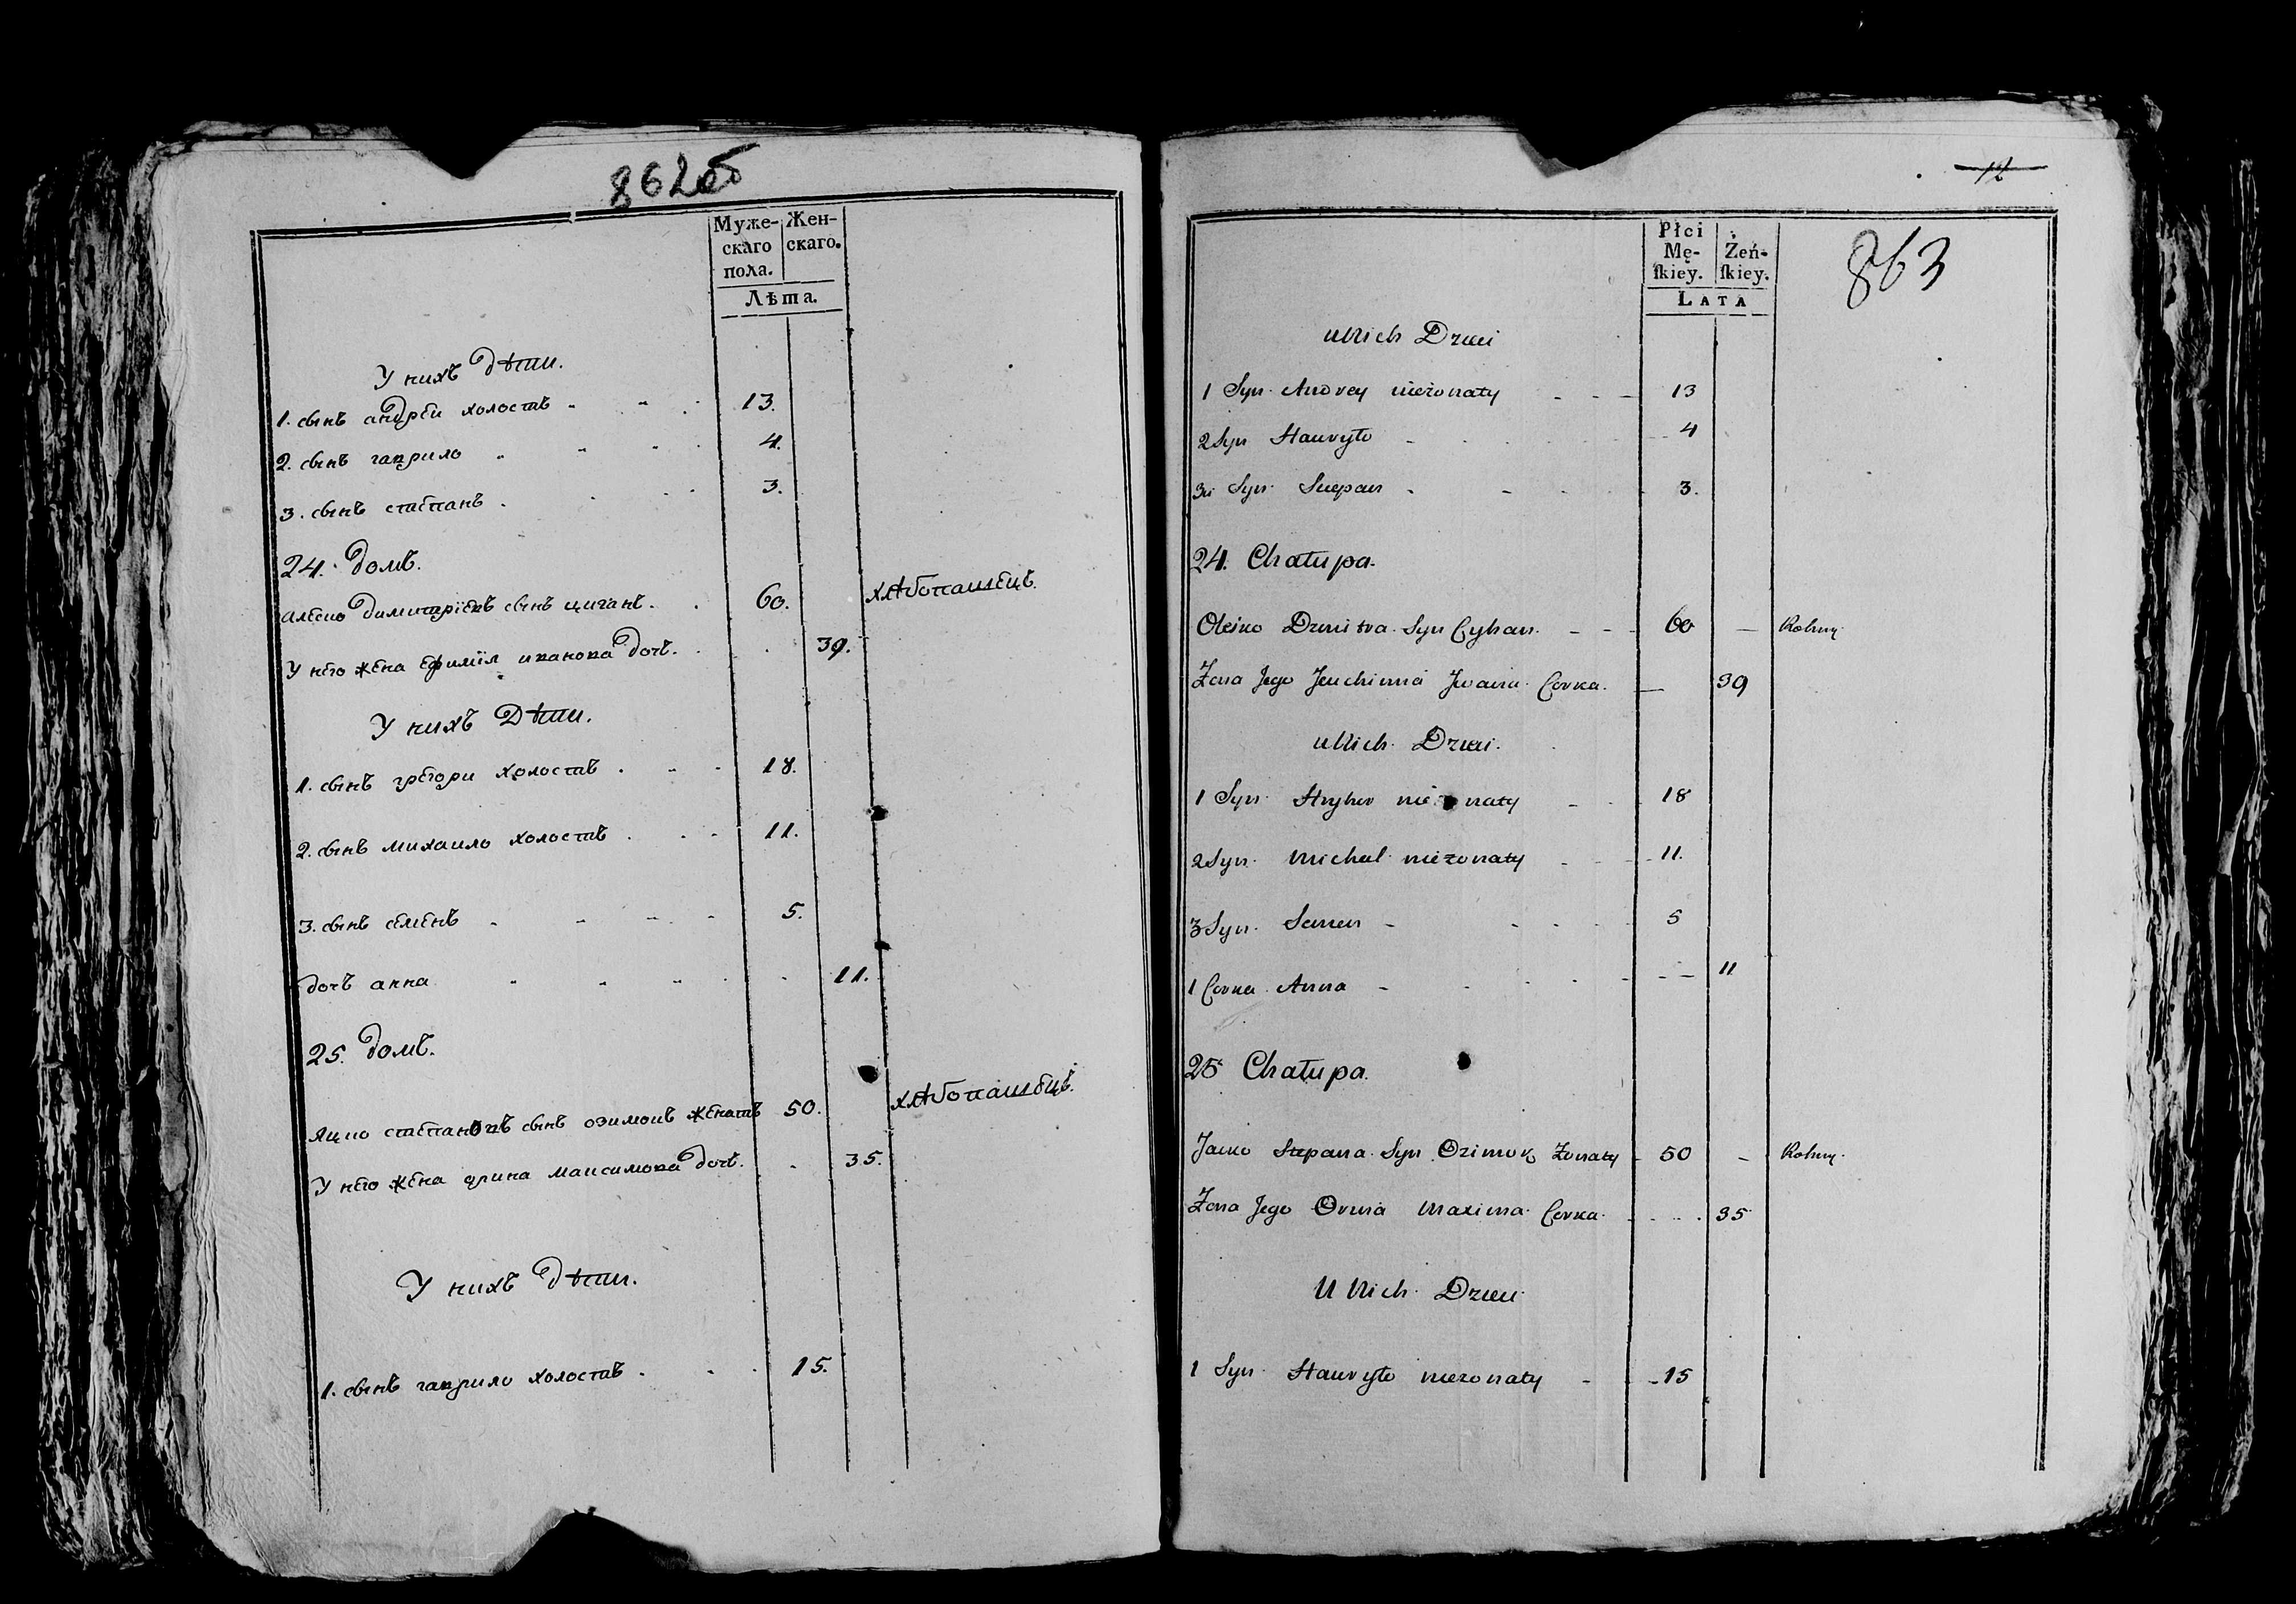 862об
Муже- Жен-
скаго скаго.
пола.
Лѣта.
У нихъ дѣти.
1. сынъ андрей холостъ 13.
2. сынъ гаврило 4.
3. сынъ степанъ 3.
24. домъ.
алеско димитріевъ сынъ циганъ. 60. хлѣбопашецъ.
У него жена ефимія иванова дочь. 39.
У нихъ Дѣти.
1. сынъ грегори холостъ 18.
2. сынъ михаило холостъ 11.
3. сынъ семенъ 5.
дочь анна 11.
25. домъ.
яцко степановъ сынъ озимокъ женатъ 50. хлѣбопашецъ.
У него жена орина максимова дочь. 35.
У нихъ дѣти.
1. сынъ гаврило холостъ 15.
12
863
Płci
Mę- Żeń-
ſkiey. ſkiey.
LATA
u Nich Dzieci
1 Syn Andrey nieżonaty 13
2 Syn Hauryło 4
3 Syn Sciepan 3.
24. Chałupa.
Oleiko Dzmitra Syn Cyhan 60 — Rolnik
Żona Jego Jeuchimia Jwana Corka. — 39
u Nich Dzieci.
1 Syn Hryhor nieżonaty 18
2 Syn Michał nieżonaty 11.
3 Syn Semen 5
1 Corka Anna 11
25 Chałupa.
Jacko Stepana Syn Ozimok Żonaty 50 — Rolnik
Żona Jego Oryna Maxima Corka 35
U Nich Dzieci
1 Syn Hauryło nieżonaty 15